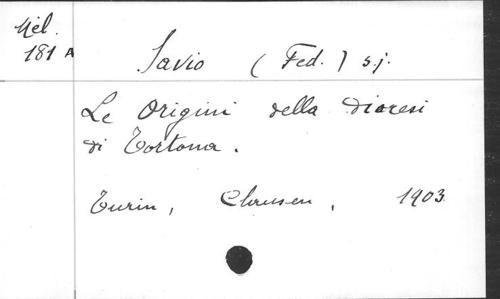 Mél.
181 A
Savio (Fed.) s.j.
Le Origini della diocesi
di Tortona.
Turin, Clausen, 1903